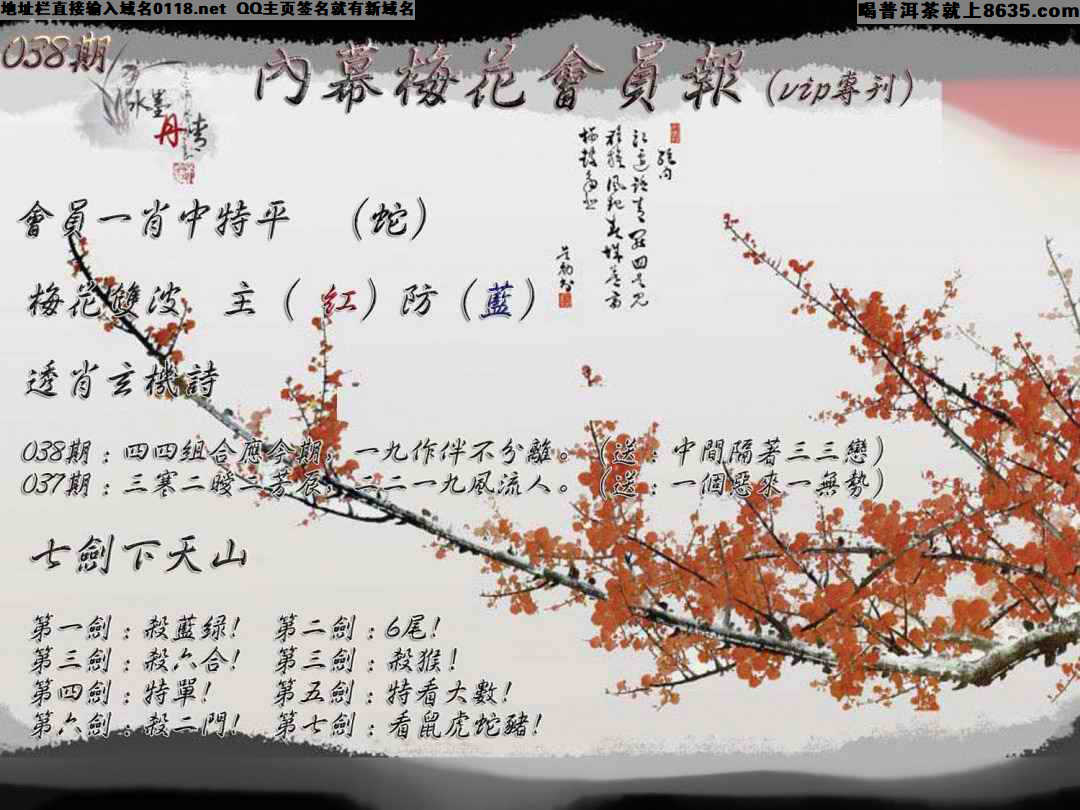 地址栏直接输入域名0118.net QQ主页签名就有新域名
喝普洱茶就上8635.com
038期
內幕梅花會員報（vip專刊）
水墨
丹青
會員一肖中特平 （蛇）
梅花雙波 主（紅）防（藍）
透肖玄機詩
038期：四四组合應今期，一九作伴不分離。（送：中間隔著三三戀）
037期：三寒二暖二芳辰，二二一九風流人。（送：一個惡來一無勢）
七劍下天山
第一劍：殺藍绿！ 第二劍：6尾！
第三劍：殺六合！ 第三劍：殺猴！
第四劍：特單！ 第五劍：特看大數！
第六劍：殺二門！ 第七劍：看鼠虎蛇豬！